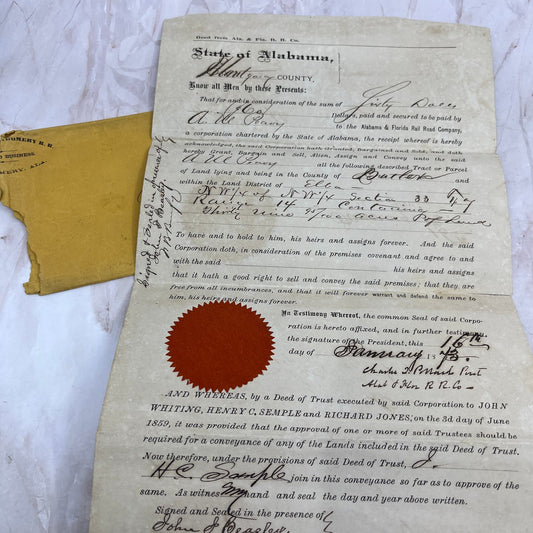 Deed from Ala. & Fla. R. R. Co.
State of Alabama,
Montgomery COUNTY,
Know all Men by these Presents:
That for and in consideration of the sum of Sixty Dolls
Dollars, paid and secured to be paid by
A M to the Alabama & Florida Rail Road Company,
a corporation chartered by the State of Alabama, the receipt whereof is hereby
acknowledged, the said Corporation hath Granted, Bargained and Sold, and doth
hereby Grant, Bargain and Sell, Alien, Assign and Convey unto the said
A M all the following described Tract or Parcel
of Land lying and being in the County of Butler and
within the Land District of Elba
N W ¼ of N W ¼ Section 33
Range 14 Containing
Thirty Nine Acres of Land
To have and to hold to him, his heirs and assigns forever. And the said
Corporation doth, in consideration of the premises covenant and agree to and
with the said his heirs and assigns
that it hath a good right to sell and convey the said premises; that they are
free from all incumbrances, and that it will forever warrant and defend the same to
him, his heirs and assigns forever.
In Testimony Whereof, the common Seal of said Corpo-
ration is hereto affixed, and in further testimony,
the signature of the President, this 16th
day of January 18
Charles T Pollard Prest
Ala & Flor R R Co
AND WHEREAS, by a Deed of Trust executed by said Corporation to JOHN
WHITING, HENRY C. SEMPLE and RICHARD JONES, on the 3d day of June
1859, it was provided that the approval of one or more of said Trustees should be
required for a conveyance of any of the Lands included in the said Deed of Trust.
Now therefore, under the provisions of said Deed of Trust, I
H C Semple join in this conveyance so far as to approve of the
same. As witness my hand and seal the day and year above written.
Signed and Sealed in the presence of
John J Beasley
Signed & Sealed in presence of
John J Beasley
GOMERY R. R.
BUSINESS
ERY, ALA.